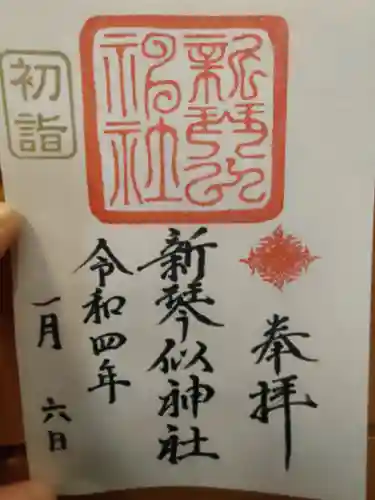 初詣
新琴似
神社
奉拝
新琴似神社
令和四年
一月六日